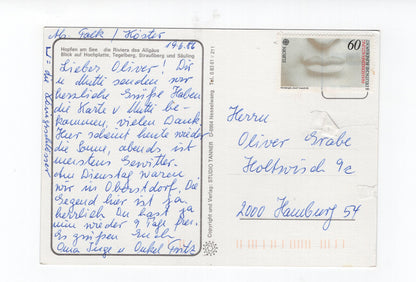 Abs. Falk / Höster
19.6.86
Hopfen am See die Riviera des Allgäus
Blick auf Hochplatte, Tegelberg, Straußberg und Säuling
Lieber Oliver! Dir
u. Mutti senden wir
herzliche Grüße. Haben
die Karte v. Mutti be-
kommen, vielen Dank.
Hier scheint heute wieder
die Sonne, abends ist
meistens Gewitter.
Am Dienstag waren
wir in Oberstdorf. Die
Gegend hier ist ja
herrlich. Du hast ja
nun wieder 9 Tage frei.
Es grüßen Euch
Oma Inge u. Onkel Fritz
Copyright und Verlag: STUDIO TANNER · D-8964 Nesselwang
EUROPA
60
DEUTSCHE BUNDESPOST
Herrn
Oliver Grabe
Holtwisch 9c
2000 Hamburg 54